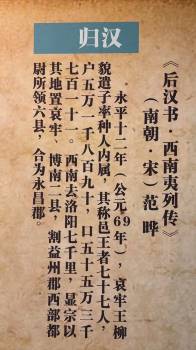 归汉
《后汉书·西南夷列传》
(南朝·宋)范晔
永平十二年(公元69年),哀牢王柳
貌遣子率种人内属,其称邑王者七十七人,
户五万一千八百九十,口五十五万三千
七百一十一。西南去洛阳七千里,显宗以
其地置哀牢、博南二县,割益州郡西部都
尉所领六县,合为永昌郡。